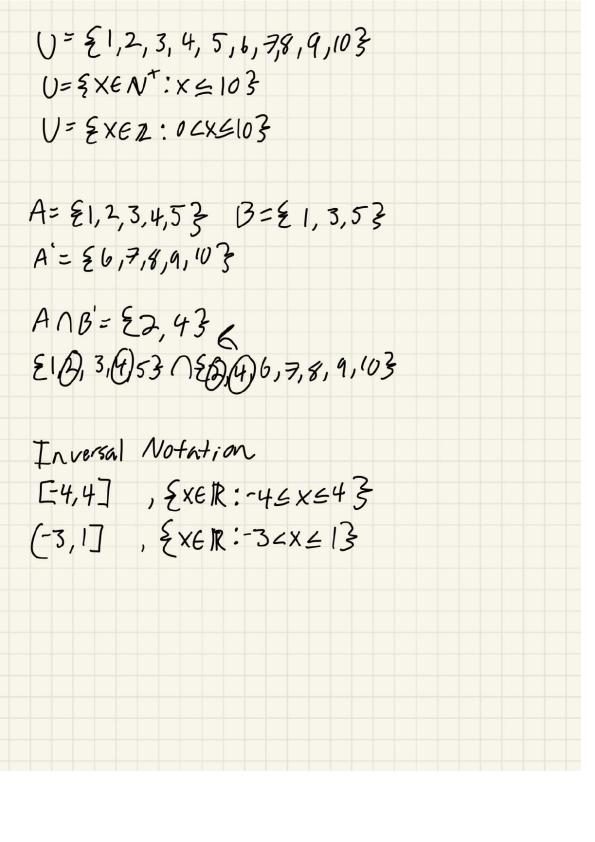 U = {1,2,3,4,5,6,7,8,9,10}
U={x∈N⁺:x≤10}
U={x∈Z:0<x≤10}
A={1,2,3,4,5} B={1,3,5}
A'={6,7,8,9,10}
A∩B'={2,4}
{1,2,3,4,5}∩{2,4,6,7,8,9,10}
Inversal Notation
[-4,4] , {x∈ℝ:-4≤x≤4}
(-3,1] , {x∈ℝ:-3<x≤1}